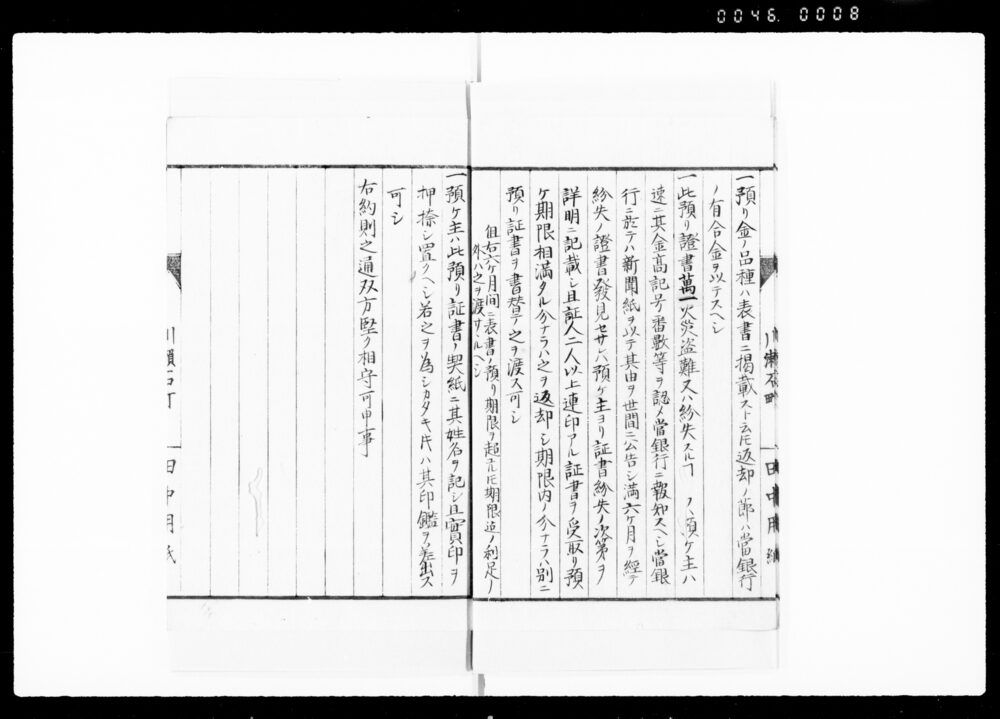 0046. 0008
一預リ金ノ品種ハ表書ニ掲載スト云ヒ返却ノ節ハ當銀行
ノ有合金ヲ以テスヘシ
一此預リ證書萬一火災盗難又ハ紛失スルヿ ノ預ケ主ハ
速ニ其金高記号番數等ヲ認メ當銀行ニ報知スヘシ當銀
行ニ於テハ新聞紙ヲ以テ其由ヲ世間ニ公告シ満六ケ月ヲ經テ
紛失ノ證書發見セサレハ預ケ主ヨリ証書紛失ノ次第ヲ
詳明ニ記載シ且証人二人以上連印アル証書ヲ受取リ預
ケ期限相満タル分ナラハ之ヲ返却シ期限内ノ分ナラハ別ニ
預リ証書ヲ書替テ之ヲ渡ス可シ
但右六ケ月間ニ表書ノ預リ期限ヲ超ユルモ期限迄ノ利足ノ
外ハ之ヲ渡サルヘシ
一預ケ主ハ此預リ証書ノ契紙ニ其姓名ヲ記シ且實印ヲ
押捺シ置クヘシ若之ヲ為シカタキ片ハ其印鑑ヲ差出ス
可シ
右約則之通双方堅ク相守可申事
川瀬石町
田中用紙